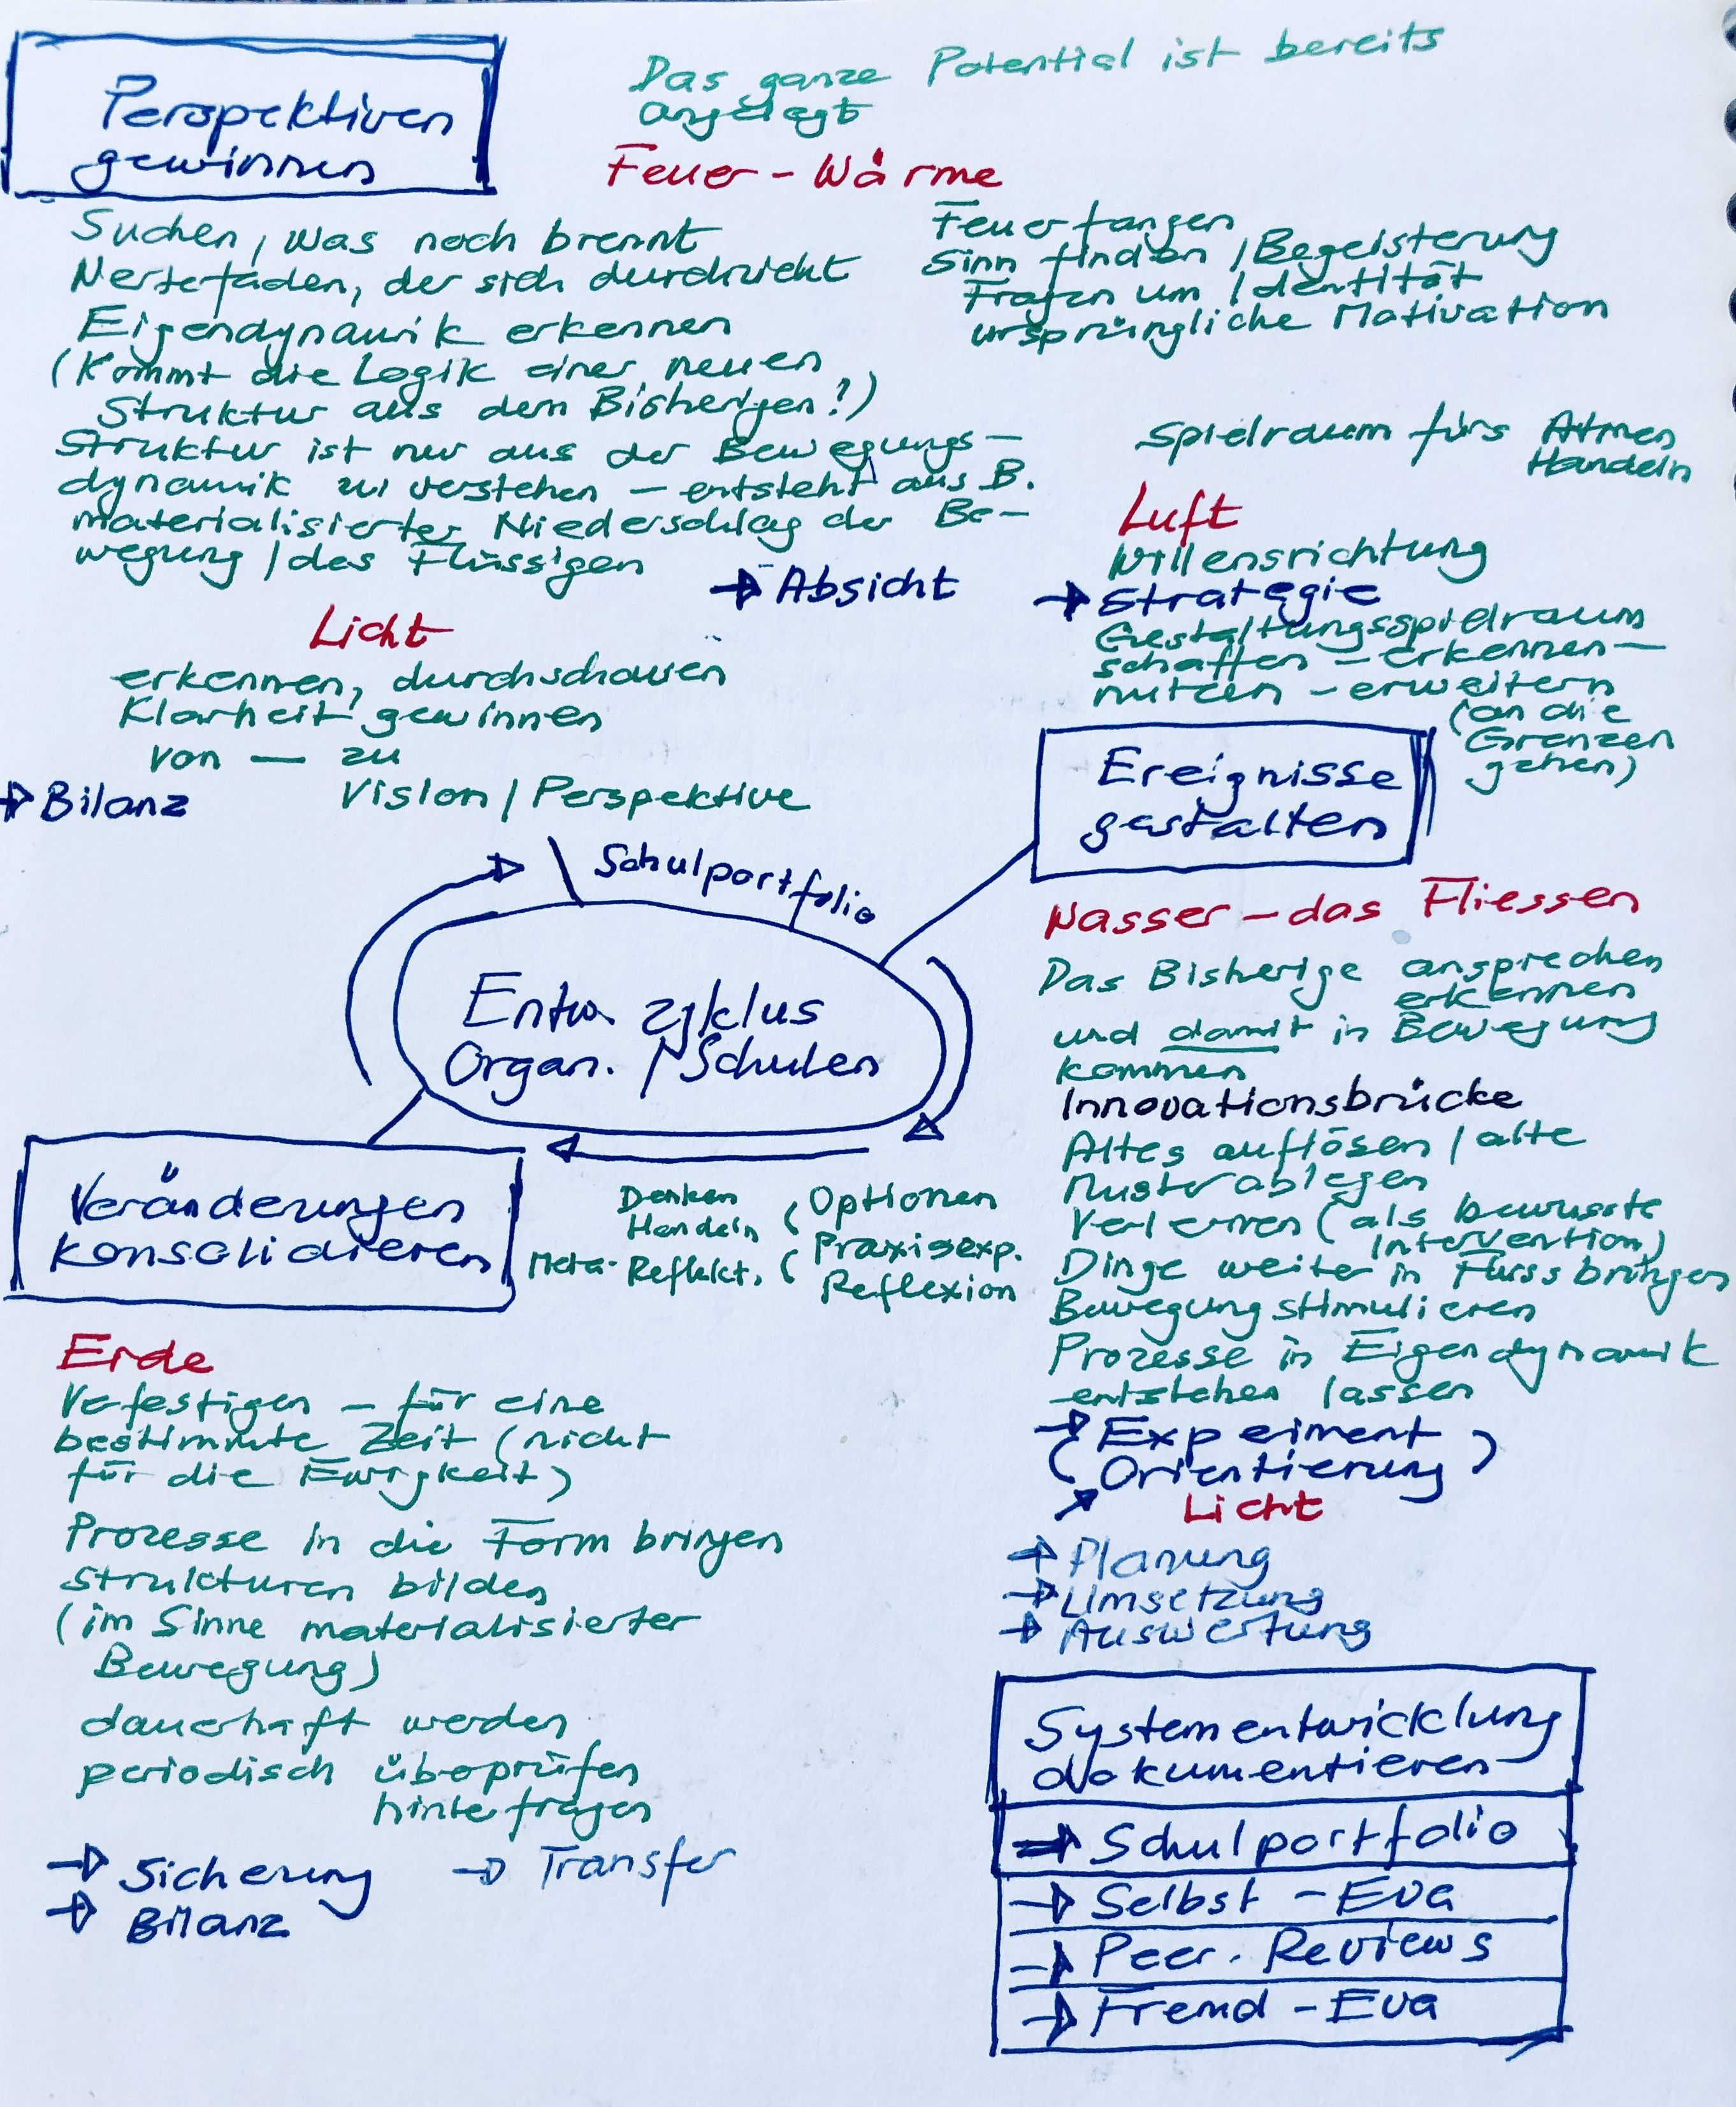 Perspektiven
gewinnen
Das ganze Potential ist bereits
angelegt
Feuer - Wärme
Suchen, was noch brennt
Wertefäden, der sich durchzieht
Eigendynamik erkennen
(Kommt die Logik einer neuen
Struktur aus dem Bisherigen?)
Struktur ist nur aus der Bewegungs-
dynamik zu verstehen - entsteht aus B.
materialisierter Niederschlag der Be-
wegung / des Flüssigen
→ Absicht
Feuer fangen
Sinn finden / Begeisterung
Fragen um Identität
ursprüngliche Motivation
Spielraum fürs Atmen
Handeln
Luft
Willensrichtung
→ Strategie
Gestaltungsspielraum
schaffen - erkennen -
nutzen - erweitern
(an die
Grenzen
gehen)
Licht
erkennen, durchschauen
Klarheit gewinnen
von — zu
→ Bilanz
Vision / Perspektive
Ereignisse
gestalten
Schulportfolio
Entw. zyklus
Organ. / Schulen
Wasser - das Fliessen
Das Bisherige ansprechen
erkennen
und damit in Bewegung
kommen
Innovationsbrücke
Altes auflösen / alte
Muster ablegen
Verlernen (als bewusste
Intervention)
Dinge weiter in Fluss bringen
Bewegung stimulieren
Prozesse in Eigendynamik
entstehen lassen
→ Experiment
( Orientierung )
Licht
→ Planung
→ Umsetzung
→ Auswertung
Veränderungen
konsolidieren
Denken ( Optionen
Handeln ( Praxisexp.
Meta-Reflekt. ( Reflexion
Erde
Verfestigen - für eine
bestimmte Zeit (nicht
für die Ewigkeit)
Prozesse in die Form bringen
Strukturen bilden
(im Sinne materialisierter
Bewegung)
dauerhaft werden
periodisch überprüfen
hinterfragen
→ Sicherung → Transfer
→ Bilanz
Systementwicklung
dokumentieren
⇒ Schulportfolio
→ Selbst - Eva
→ Peer. Reviews
→ Fremd - Eva